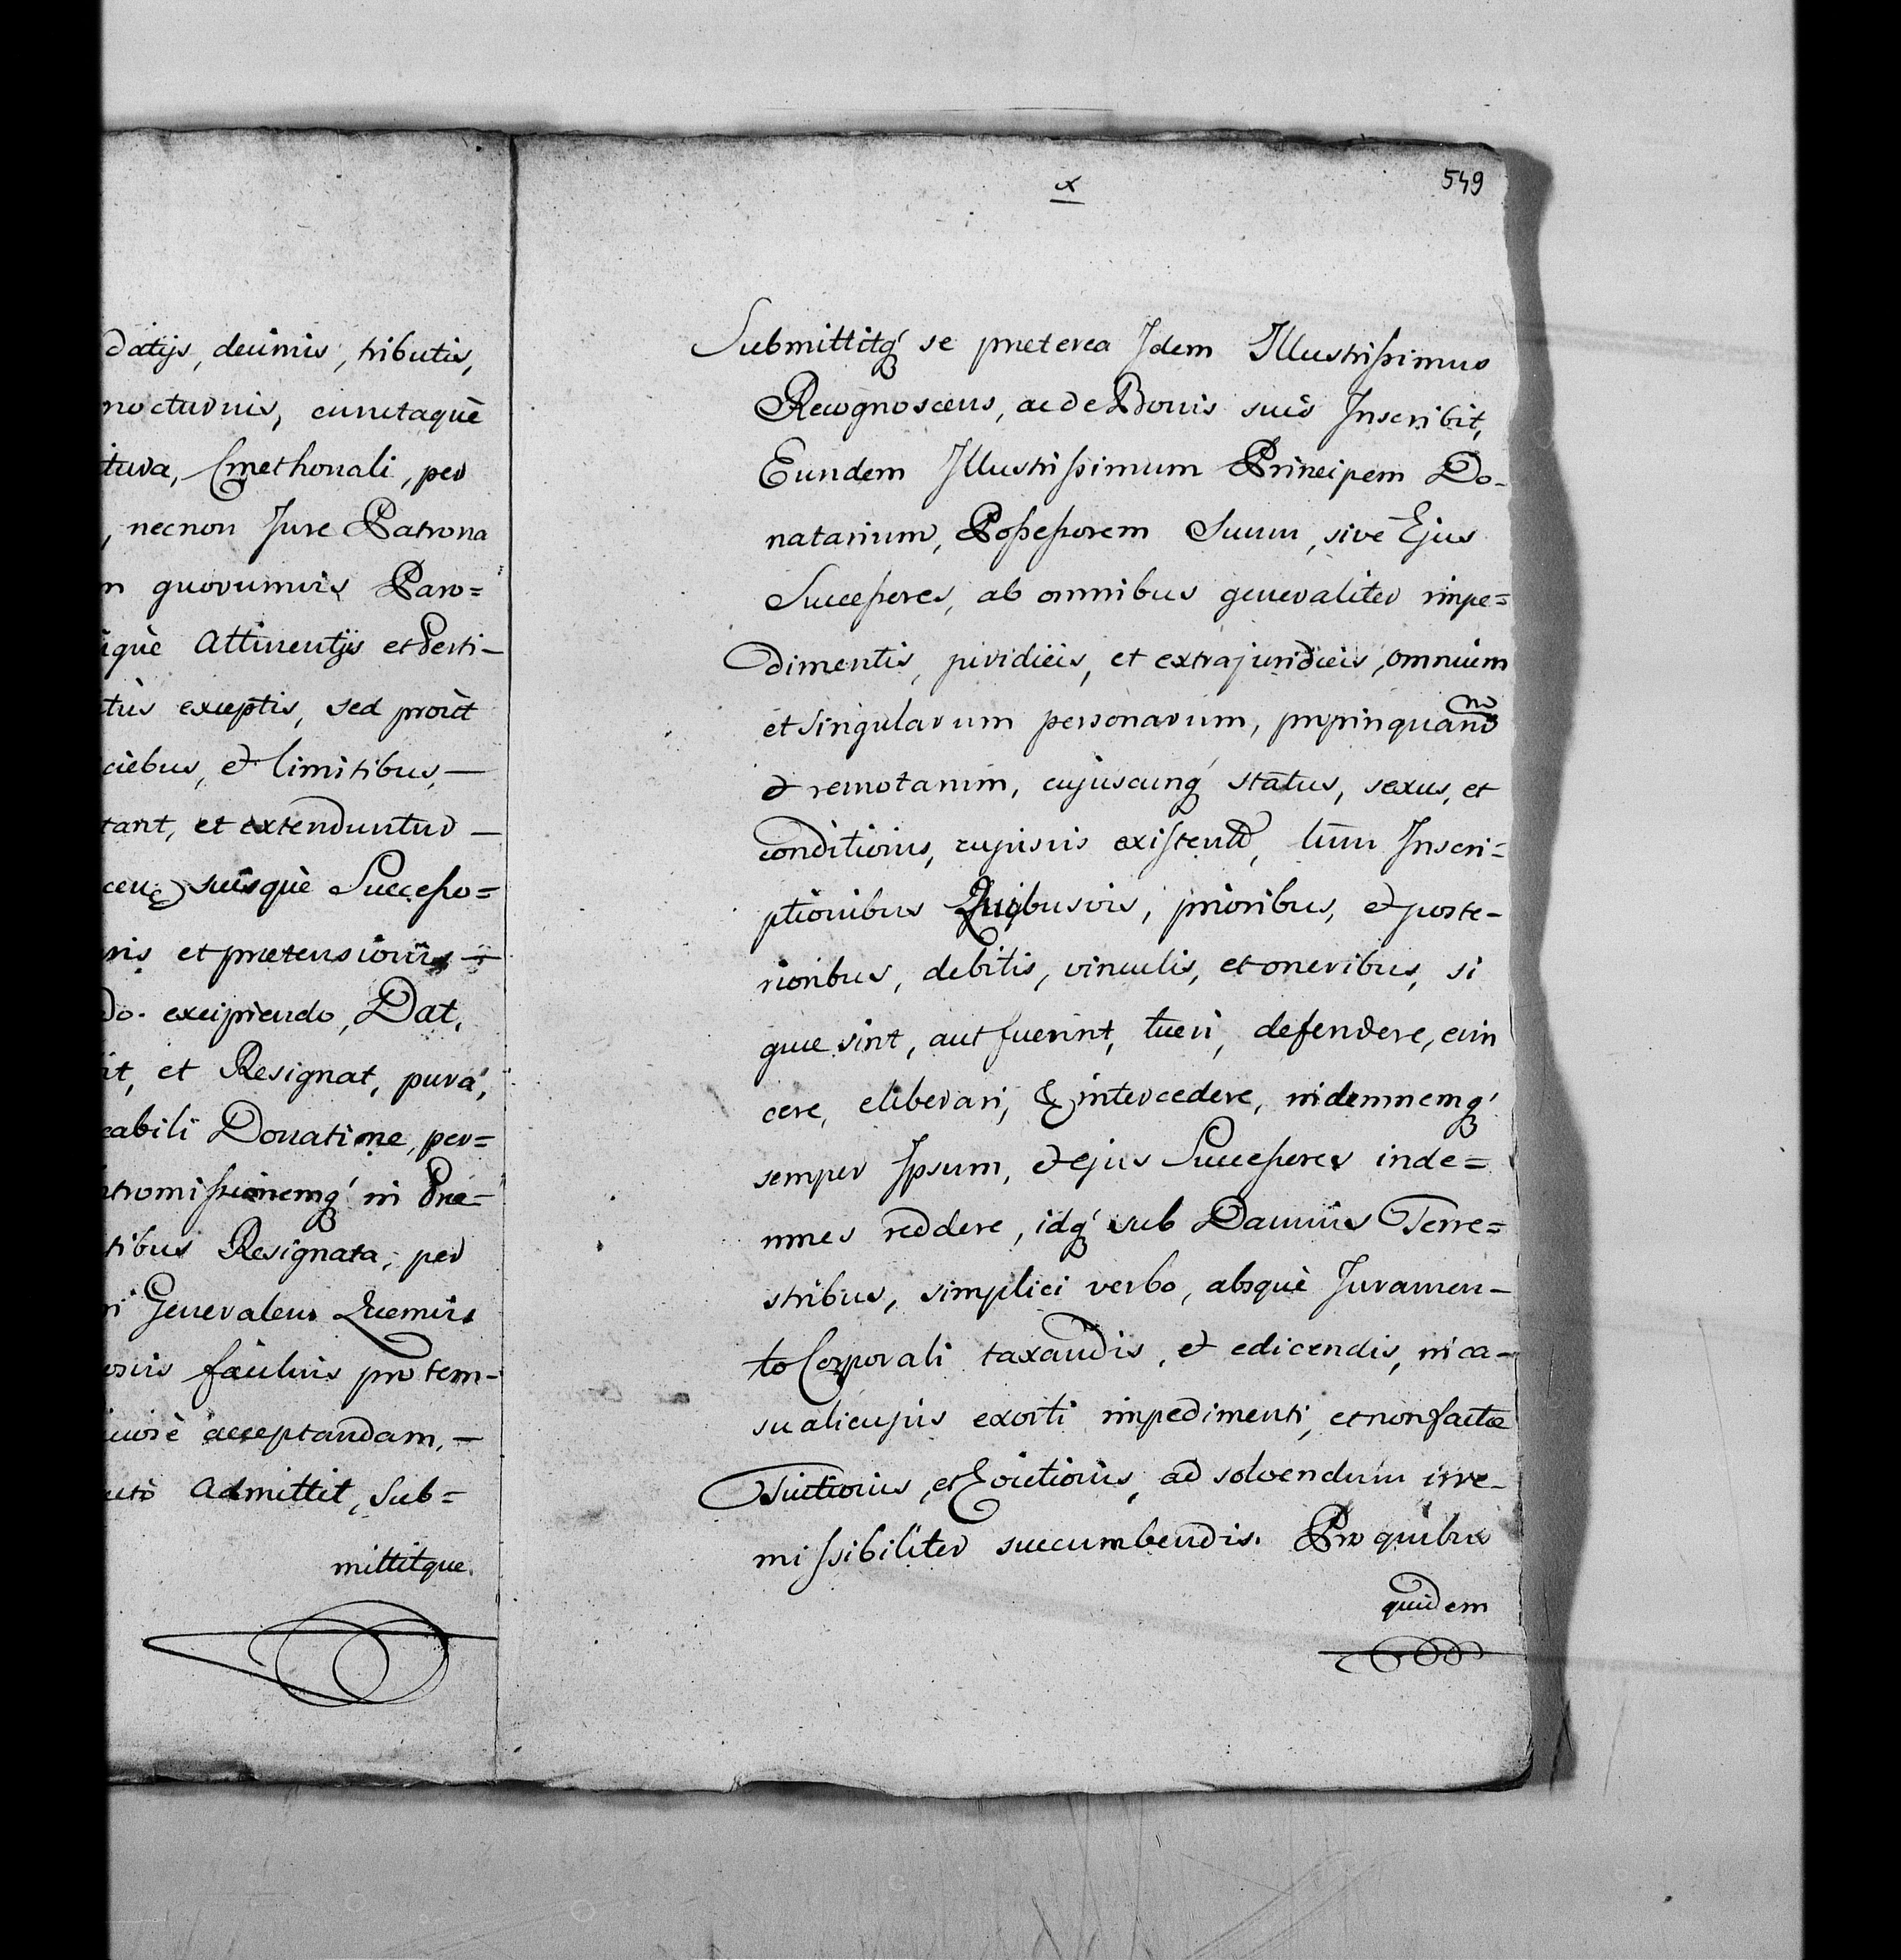 datijs, decimis, tributis,
nocturnis, cunctaquè
tura, Cmethonali, per
, necnon Jure Patrona
m quorumvis Paro=
iquè Attinentijs et Perti-
tùs exceptis, sed proùt
ciebus, et limitibus, —
tant, et extenduntur —
suisquè Successo=
nis et praetensionis —
do. excipiendo, Dat,
it, et Resignat, purâ,
cabili Donatione, per=
ntromissionemq́ in Prae-
tibus Resignata, per
ri Generalem Quemvis
osvis facilius pro tem-
acceptandam, —
Admittit, Sub=
mittitque.
x
549
Submittitq́ se praeterea Idem Illustrissimus
Recognoscens, ac de Bonis suis Inscribit,
Eundem Illustrissimum Principem Do-
natarium, Possessorem Suum, sivè Ejus
Successores, ab omnibus generaliter impe=
dimentis, juridicis, et extrajuridicis, omnium
et singularum personarum, propinquarũ
et remotarum, cujuscunq́ status, sexus, et
conditionis, cujusvis existent, tùm Inscri=
ptionibus Quibusvis, prioribus, et poste-
rioribus, debitis, vinculis, et oneribus, si
quae sint, aut fuerint, tueri, defendere, evin
cere, eliberari, et intercedere, indemnemq́
semper Ipsum, et ejus Successores inde=
mnes reddere, idq́ sub Damnis Terre=
stribus, simplici verbo, absquè Juramen-
to Corporali taxandis, et edicendis, in ca-
su alicujus exorti impedimenti, et non factae
Tuitionis, et Evictionis, ad solvendum irre-
missibiliter succumbendis. Pro quibus
quidem